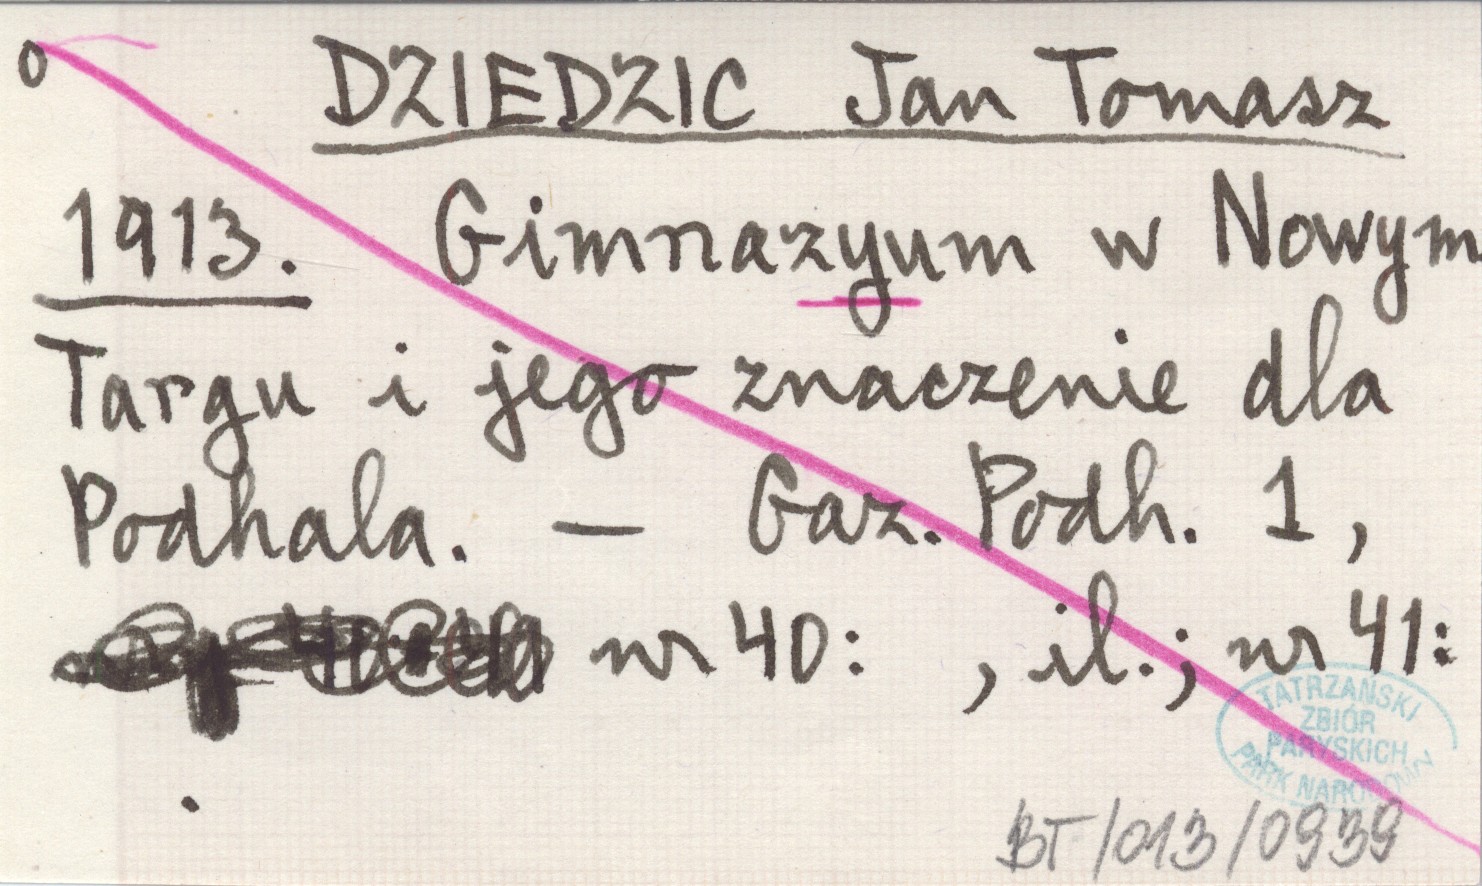 o DZIEDZIC Jan Tomasz
1913. Gimnazyum w Nowym
Targu i jego znaczenie dla
Podhala. — Gaz. Podh. 1,
nr 40: , il.; nr 41:
.
TATRZAŃSKI
ZBIÓR
PARYSKICH
PARK NARODOWY
BT/013/0939